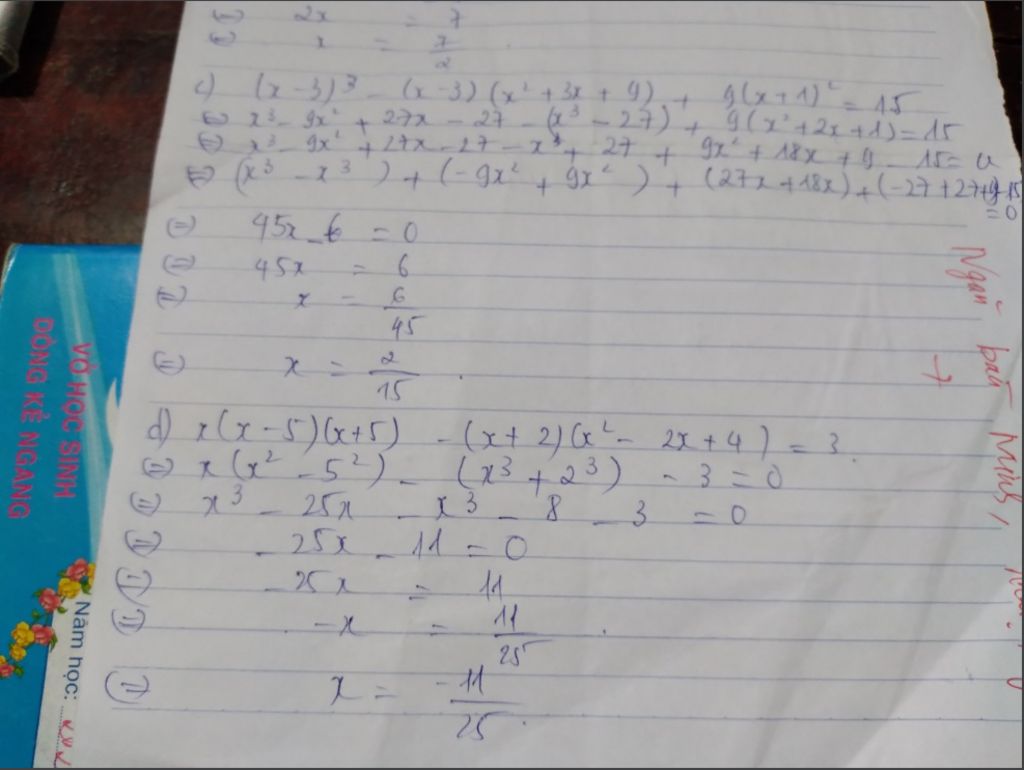 ⇔ 2x = 7
⇔ x = 7/2
c) (x-3)³ - (x-3)(x² + 3x + 9) + 9(x+1)² = 15
⇔ x³ - 9x² + 27x - 27 - (x³ - 27) + 9(x² + 2x + 1) = 15
⇔ x³ - 9x² + 27x - 27 - x³ + 27 + 9x² + 18x + 9 - 15 = 0
⇔ (x³ - x³) + (-9x² + 9x²) + (27x + 18x) + (-27 + 27 + 9 - 15)
= 0
⇔ 45x - 6 = 0
⇔ 45x = 6
⇔ x = 6/45
⇔ x = 2/15.
d) x(x-5)(x+5) - (x+2)(x² - 2x + 4) = 3.
⇔ x(x² - 5²) - (x³ + 2³) - 3 = 0
⇔ x³ - 25x - x³ - 8 - 3 = 0
⇔ - 25x - 11 = 0
⇔ - 25x = 11
⇔ -x = 11/25.
⇔ x = -11/25.
VỞ HỌC SINH
DÒNG KẺ NGANG
Năm học: